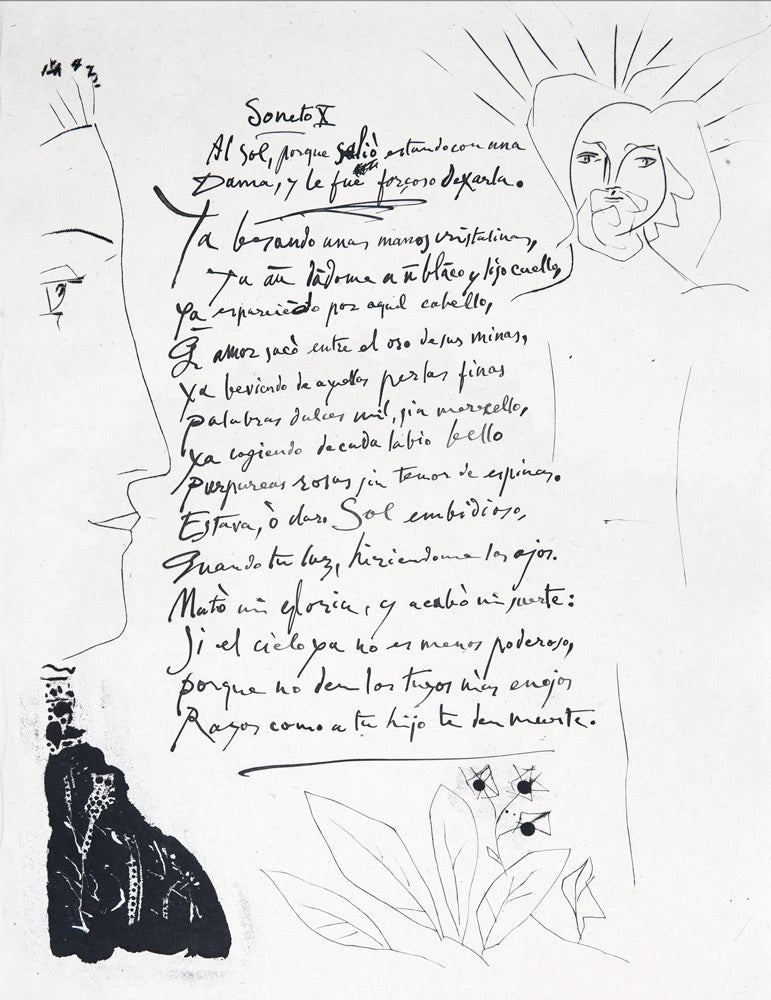 Soneto X
Al Sol, porque saliò estando con una
Dama, y le fue forçoso dexarla.
Ya besando unas manos cristalinas,
Ya añudādome a ū blāco y liso cuello,
ya esparciēdo por aquel cabello,
Q̄ amor sacò entre el oro de sus minas,
ya beviendo de aquellas perlas finas
palabras dulces mil, sin merecello,
ya cogiendo de cada labio bello
purpureas rosas sin temor de espinas.
Estava, ò claro Sol embidioso,
Quando tu luz, hiriendome los ojos.
Matò mi gloria, y acabò mi suerte:
Si el cielo ya no es menos poderoso,
porque no den los tuyos màs enojos
Rayos como a tu hijo te den muerte.